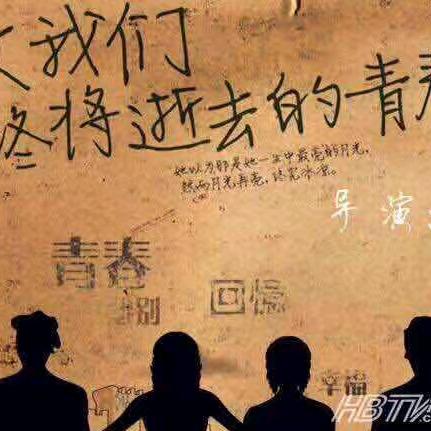 我们
终将逝去的青春
她以为那是她一生中最亮的月光,
然而月光再亮,终究冰凉。
导演
青春
告别
回憶
幸福
HBTV